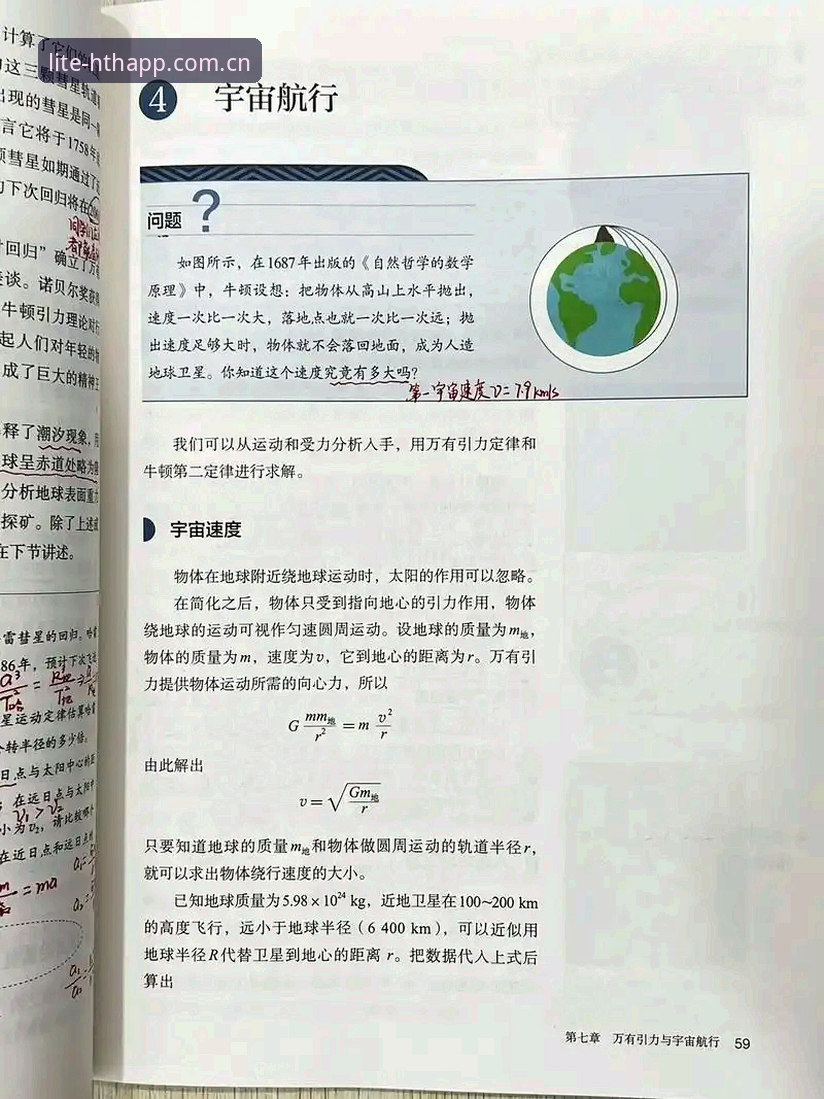 计算了它们的
lite-hthapp.com.cn
这三颗彗星轨道
出现的彗星是同一
言它将于1758年
颗彗星如期通过了
下次回归将在
回归”确立了万
谈。诺贝尔奖获
牛顿引力理论对
起人们对年轻的
成了巨大的精神
释了潮汐现象，用
球呈赤道处略为
分析地球表面重力
探矿。除了上述
在下节讲述。
雷彗星的回归。哈雷
86年，预计下次飞
星运动定律估算哈雷
转半径的多少倍。
日点与太阳中心的距
在远日点与太阳中
v₁ > v₂
小为v₂，请比较哪个
在近日点和远日点的
= ma
4 宇宙航行
问题 ?
如图所示，在1687年出版的《自然哲学的数学
原理》中，牛顿设想：把物体从高山上水平抛出，
速度一次比一次大，落地点也就一次比一次远；抛
出速度足够大时，物体就不会落回地面，成为人造
地球卫星。你知道这个速度究竟有多大吗？
第一宇宙速度v=7.9km/s
我们可以从运动和受力分析入手，用万有引力定律和
牛顿第二定律进行求解。
宇宙速度
物体在地球附近绕地球运动时，太阳的作用可以忽略。
在简化之后，物体只受到指向地心的引力作用，物体
绕地球的运动可视作匀速圆周运动。设地球的质量为m地，
物体的质量为m，速度为v，它到地心的距离为r。万有引
力提供物体运动所需的向心力，所以
G mm地/r² = m v²/r
由此解出
v = √(Gm地/r)
只要知道地球的质量m地和物体做圆周运动的轨道半径r，
就可以求出物体绕行速度的大小。
已知地球质量为5.98 × 10²⁴ kg，近地卫星在100~200 km
的高度飞行，远小于地球半径（6 400 km），可以近似用
地球半径R代替卫星到地心的距离 r。把数据代入上式后
算出
第七章 万有引力与宇宙航行 59